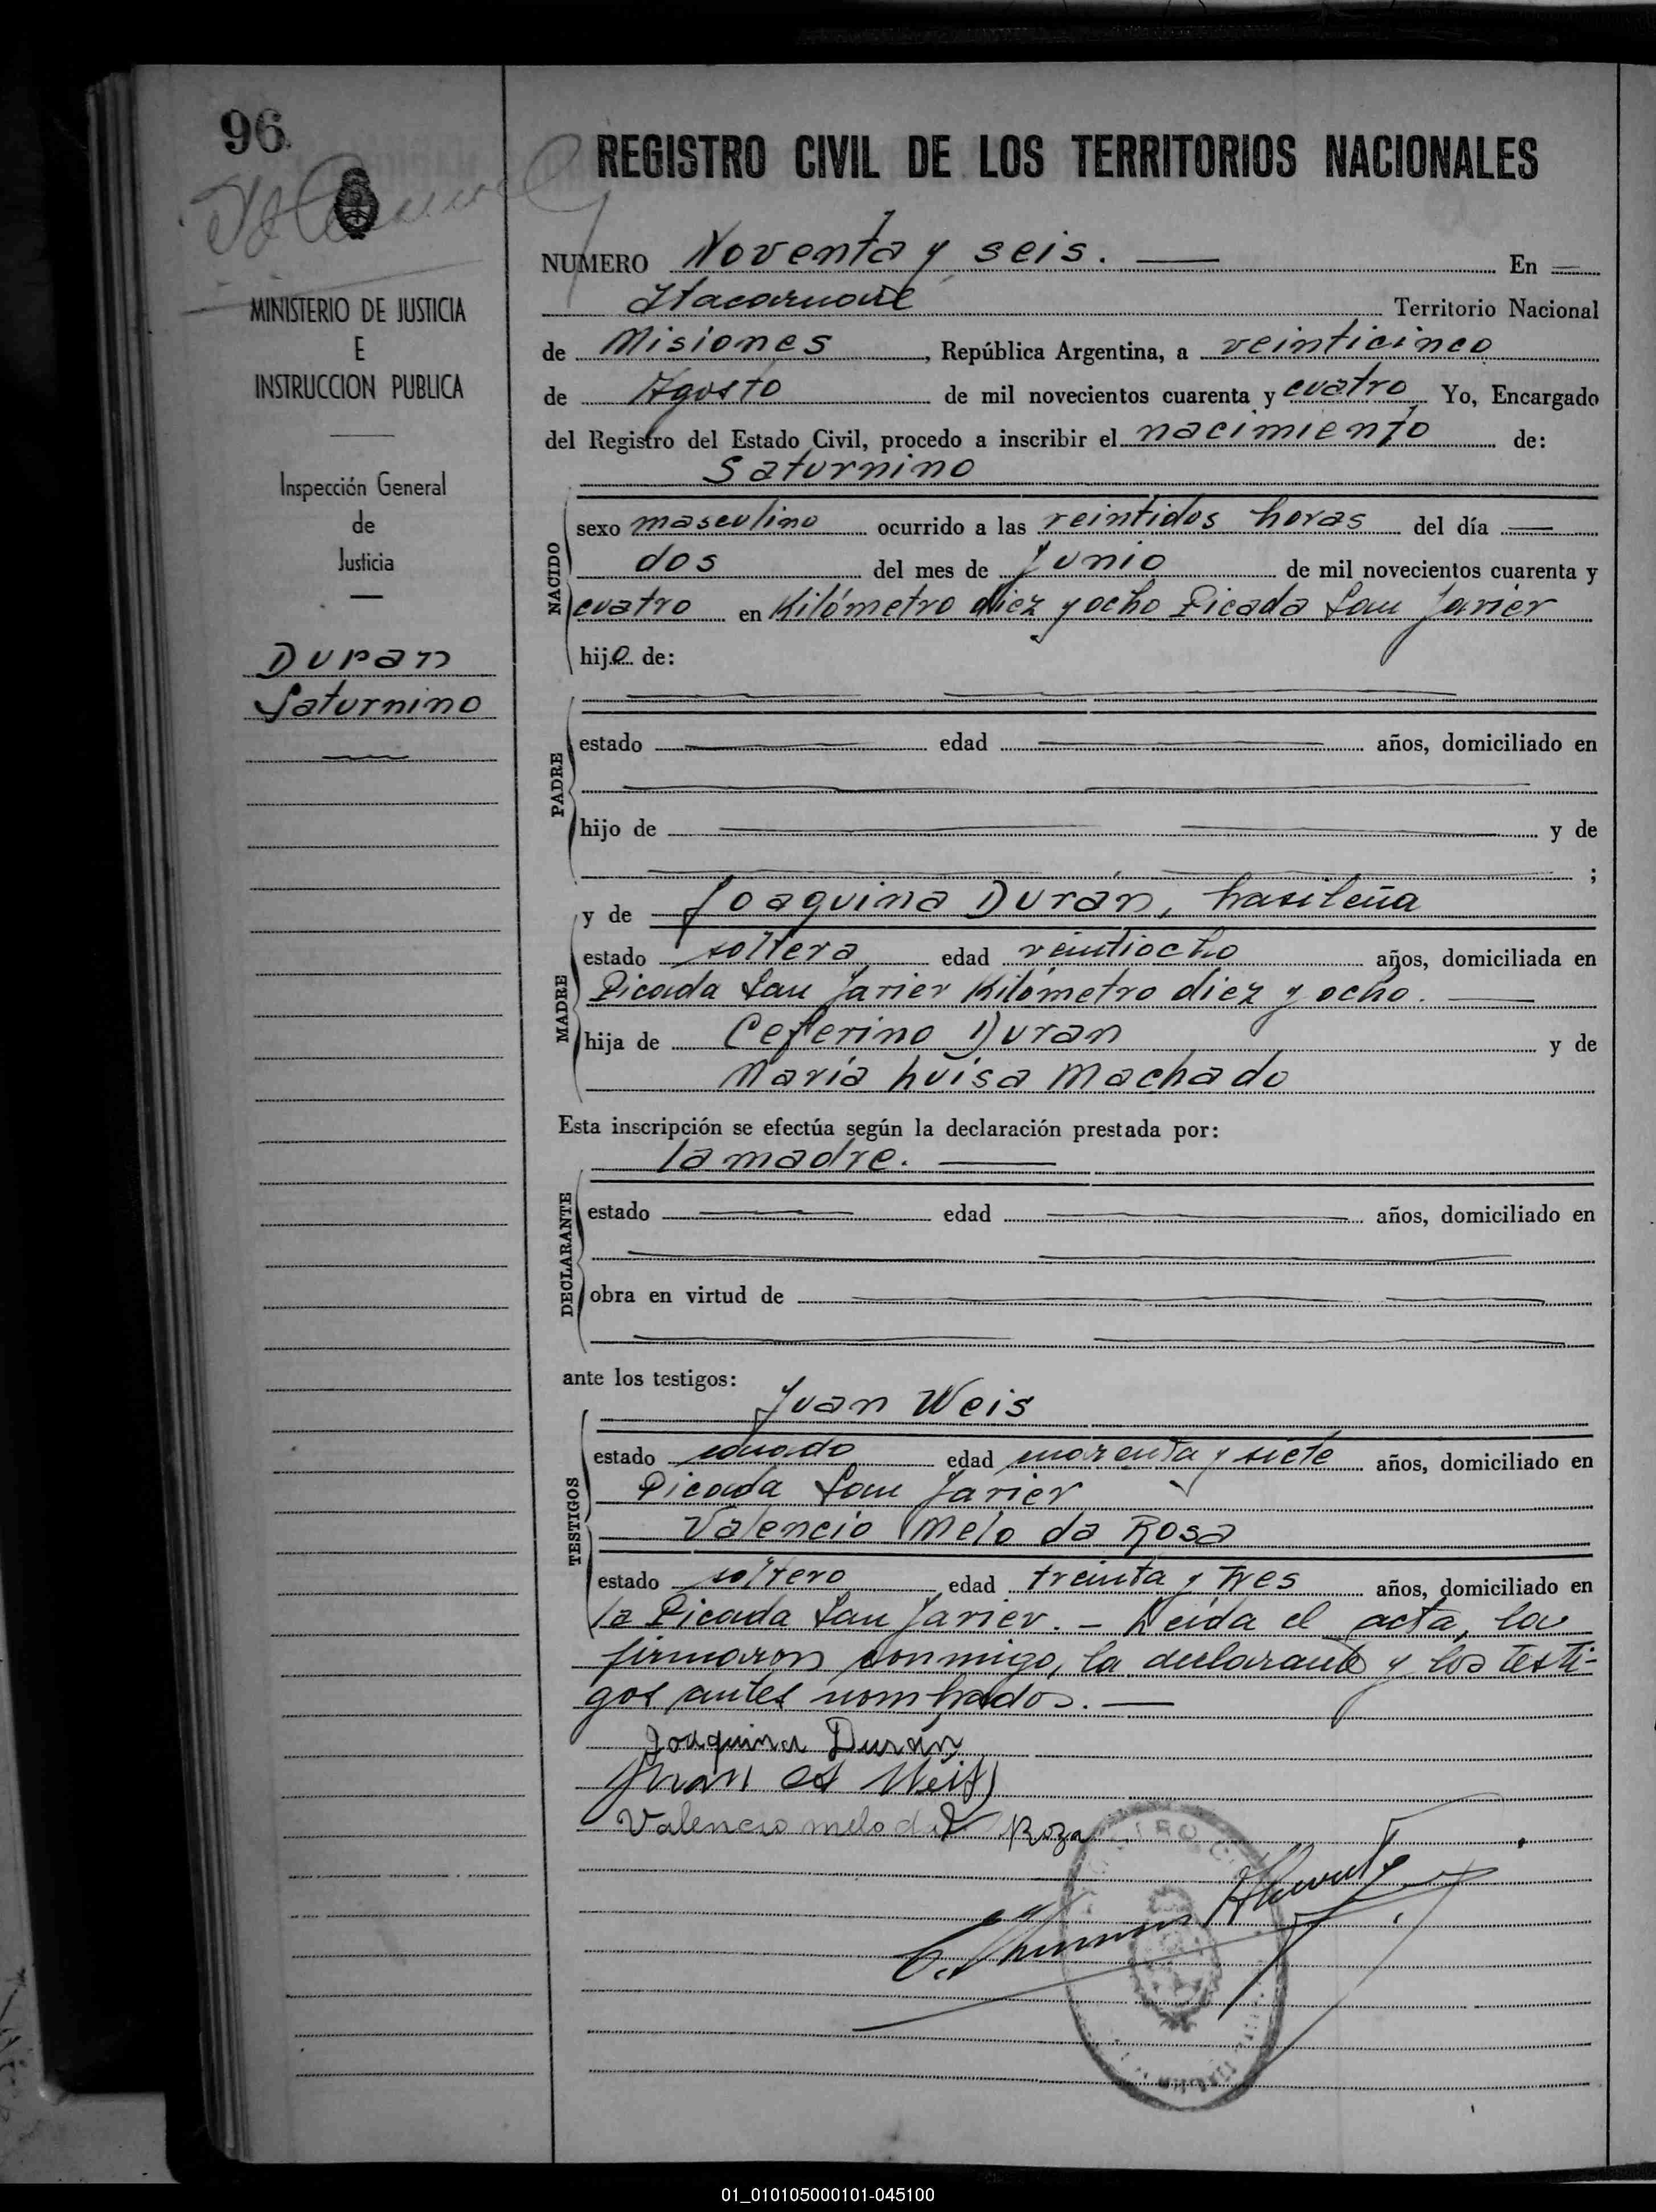 96
REGISTRO CIVIL DE LOS TERRITORIOS NACIONALES
NUMERO Noventa y seis. En
Itacaruaré Territorio Nacional
de Misiones, República Argentina, a veinticinco
de Agosto de mil novecientos cuarenta y cuatro Yo, Encargado
del Registro del Estado Civil, procedo a inscribir el nacimiento de:
Saturnino
MINISTERIO DE JUSTICIA
E
INSTRUCCION PUBLICA
Inspección General
de
Justicia
Duran
Saturnino
NACIDO
sexo masculino ocurrido a las veintidos horas del día
dos del mes de Junio de mil novecientos cuarenta y
cuatro en Kilómetro diez y ocho Picada San Javier
hijo de:
PADRE
estado edad años, domiciliado en
hijo de y de
;
MADRE
y de Joaquina Durán, brasileña
estado soltera edad veintiocho años, domiciliada en
Picada San Javier Kilómetro diez y ocho.
hija de Ceferino Duran y de
María Luisa Machado
Esta inscripción se efectúa según la declaración prestada por:
la madre.
DECLARANTE
estado edad años, domiciliado en
obra en virtud de
ante los testigos:
TESTIGOS
Juan Weis
estado casado edad cuarenta y siete años, domiciliado en
Picada San Javier
Valencio Melo da Rosa
estado soltero edad treinta y tres años, domiciliado en
la Picada San Javier. - Leida el acta, la
firmaron conmigo, la declarante y los testi-
gos antes nombrados.
Joaquina Durán
Juan Weis
Valencio melo da Roza
01_010105000101-045100